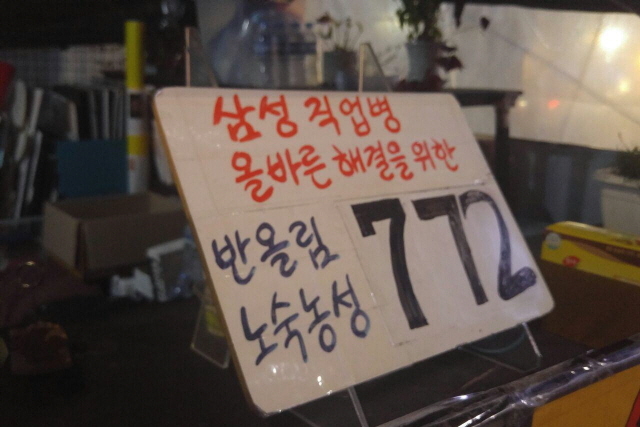 삼성 직업병
올바른 해결을 위한
반올림
노숙농성
772